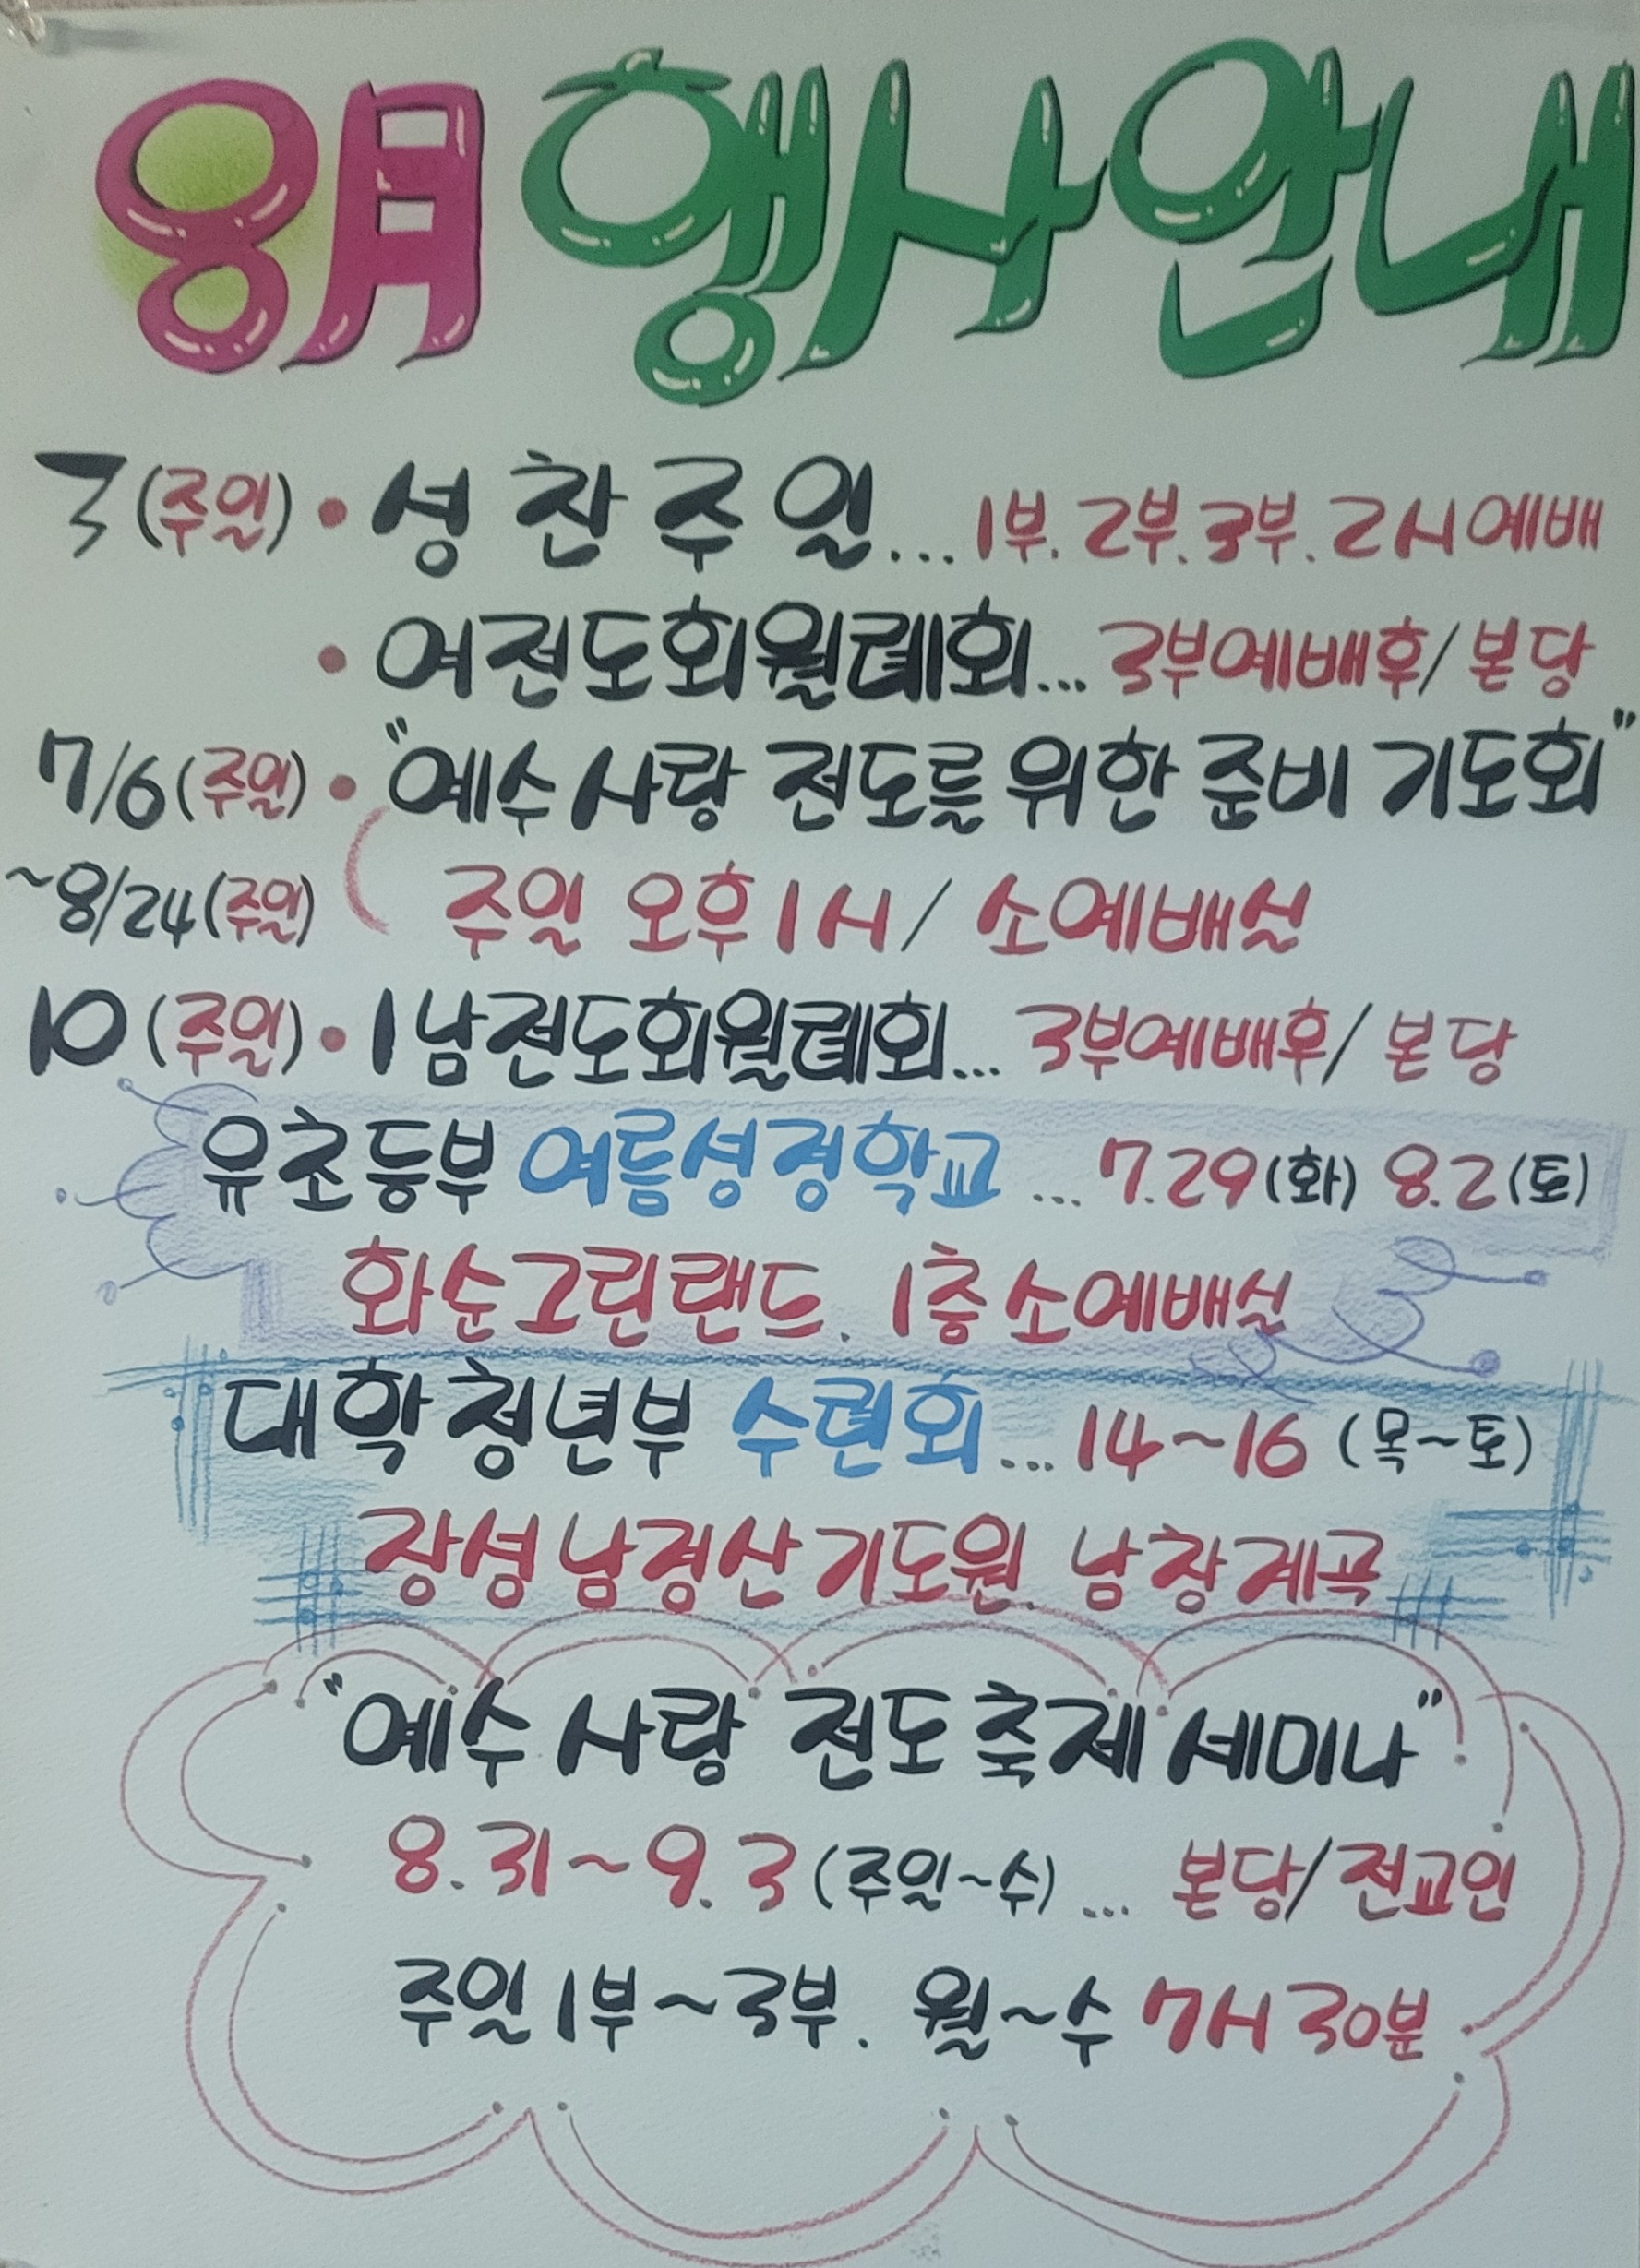 8月 행사안내
3(주일)·성찬주일... 1부.2부.3부.2시예배
·여전도회월례회... 3부예배후/본당
7/6(주일)·"예수사랑 전도를 위한 준비 기도회"
~8/24(주일) ( 주일 오후1시/소예배실
10(주일)·1남전도회월례회... 3부예배후/본당
유초등부 여름성경학교 ... 7.29(화) 8.2(토)
화순그린랜드. 1층소예배실
대학청년부 수련회... 14~16 (목~토)
장성남경산기도원. 남창계곡
"예수사랑 전도축제 세미나"
8.31~9.3(주일~수)... 본당/전교인
주일1부~3부. 월~수 7시30분